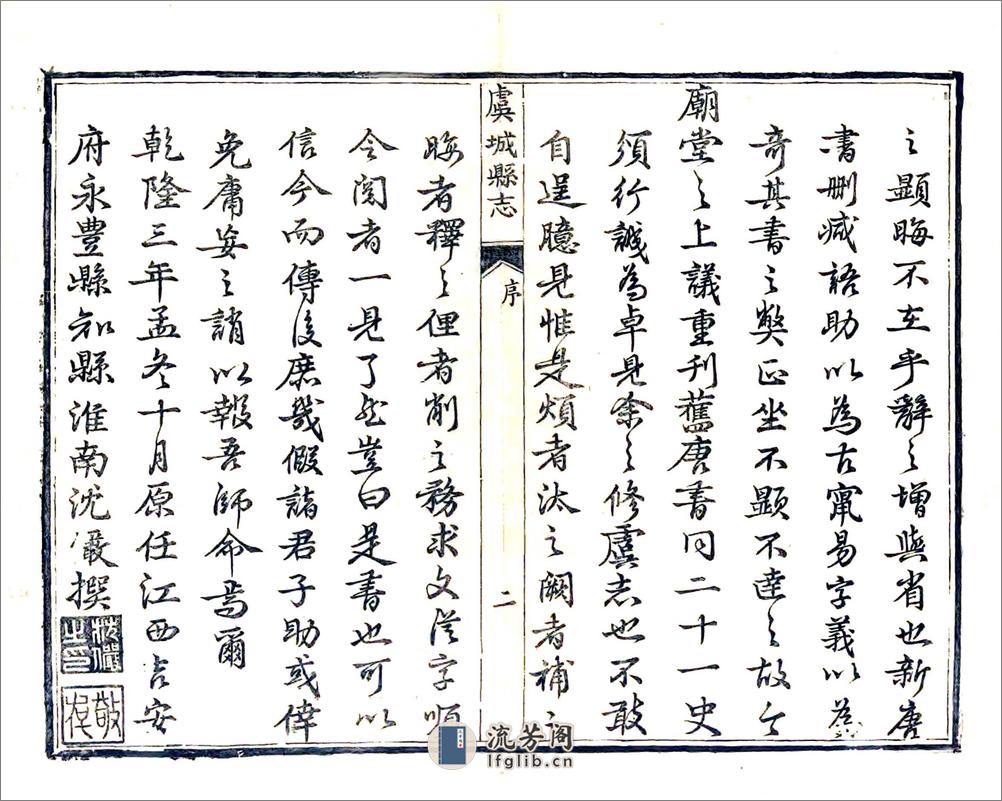 之顯晦不在乎辭之增與省也新唐
書刪減語助以為古竄易字義以為
奇其書之獘正坐不顯不達之故今
廟堂之上議重刊舊唐書同二十一史
頒行誠為卓見余之修虞志也不敢
自逞臆見惟是煩者汰之闕者補之
虞城縣志
序
二
晦者釋之俚者削之務求文從字順
令閱者一見了然豈曰是書也可以
信今而傳後庶幾假諸君子助或倖
免庸妄之誚以報吾師命焉爾
乾隆三年孟冬十月原任江西吉安
府永豐縣知縣淮南沈儼撰
沈儼之印
流芳阁
lfglib.cn